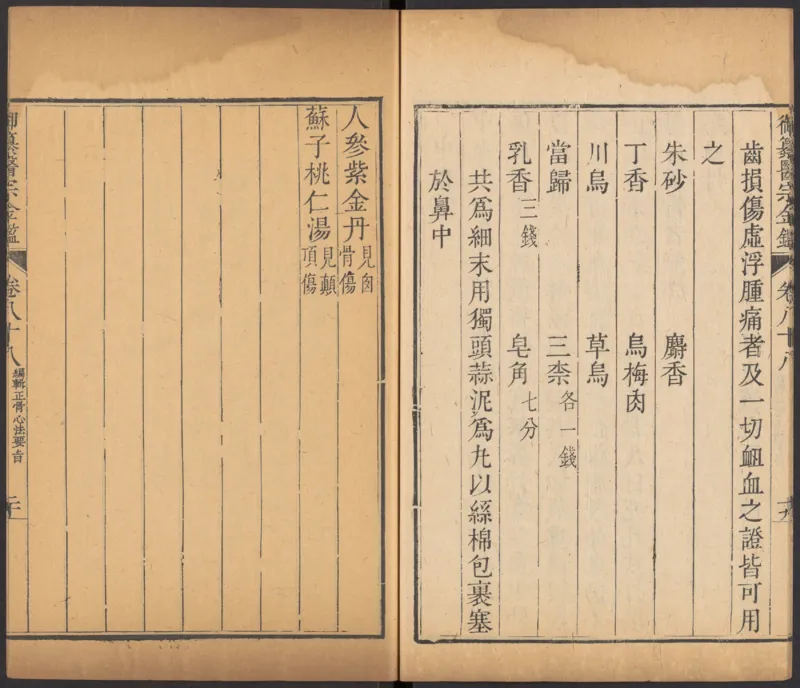 御纂醫宗金鑑 卷八十八
齒損傷虛浮腫痛者及一切衄血之證皆可用
之
朱砂 麝香
丁香 烏梅肉
川烏 草烏
當歸 三柰各一錢
乳香三錢 皂角七分
共爲細末用獨頭蒜泥爲丸以絲棉包裹塞
於鼻中
人參紫金丹見囟骨傷
蘇子桃仁湯見顛頂傷
御纂醫宗金鑑 卷八十八 編輯正骨心法要旨